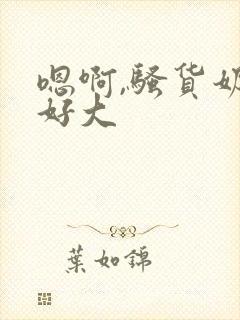 嗯啊,骚货奶
好大
葉如錦